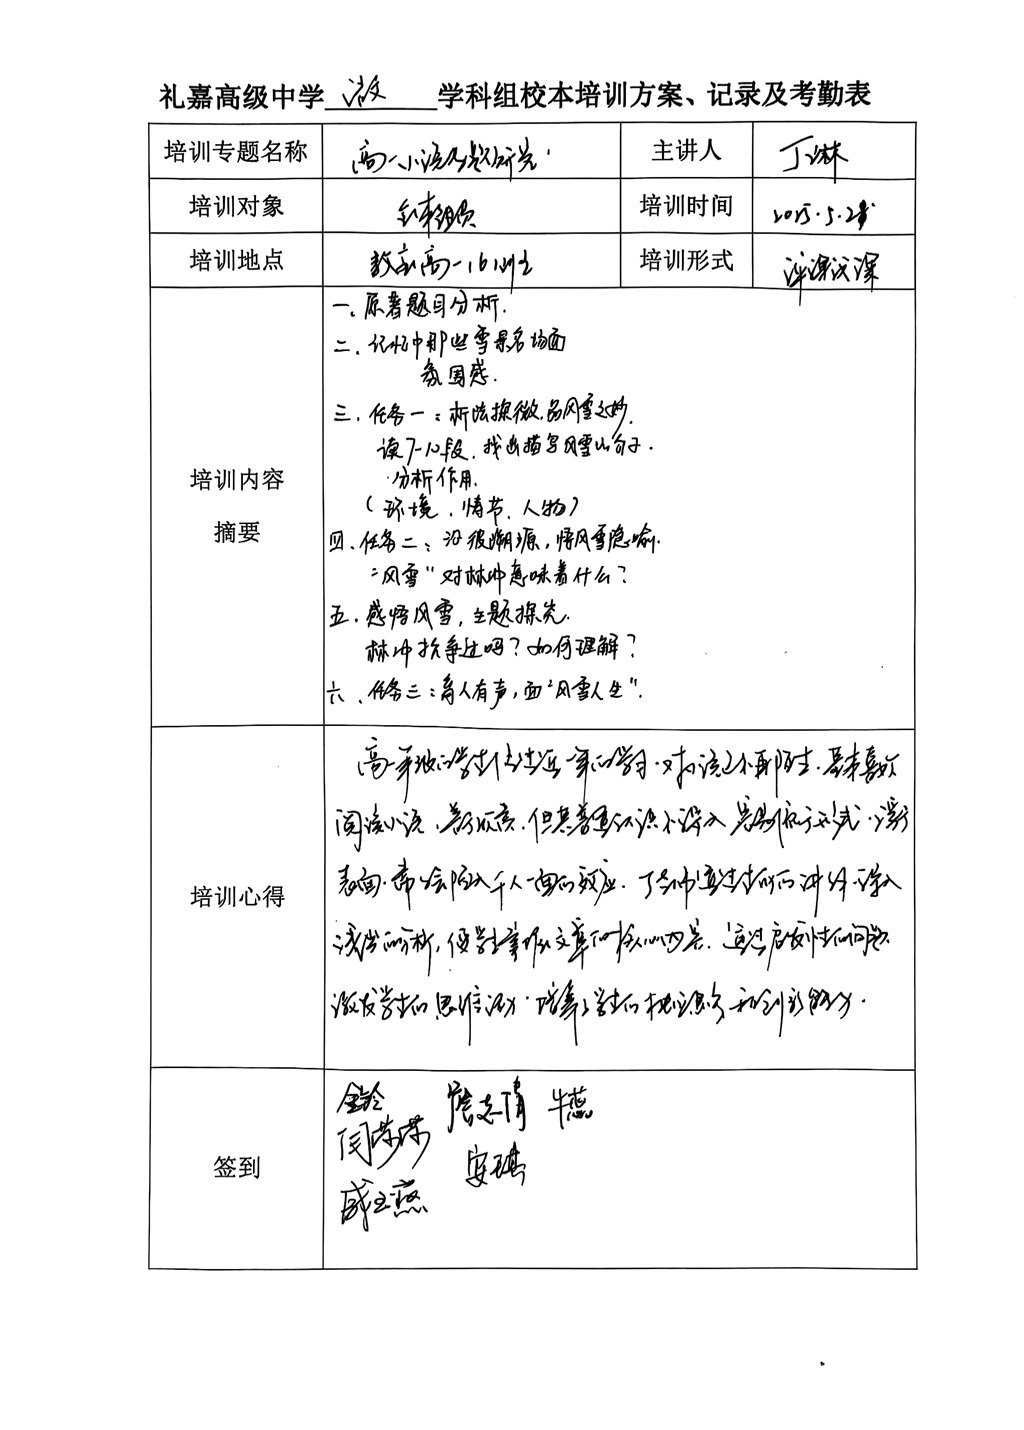 礼嘉高级中学 语文 学科组校本培训方案、记录及考勤表
培训专题名称 高一小说 主讲人 丁琳
培训对象 全体组员 培训时间 2025.5.28
培训地点 教室高一(6)班 培训形式 评课议课
一、原著题目分析.
二、记忆中那些雪景名场面
氛围感.
三、任务一：析法探微,品风雪之妙.
读7-10段,找出描写风雪的句子.
分析作用.
(环境、情节、人物)
培训内容
摘要
四、任务二：沿彼溯源,悟风雪隐喻.
“风雪”对林冲意味着什么?
五、感悟风雪,主题探究.
林冲抗争过吗?如何理解?
六、任务三：为人有声,面“风雪人生”.
高一年级的学生经过近一年的学习,对小说已不陌生.喜欢
阅读小说,但其普遍认识不深入,容易停于形式,浮于
表面.常会陷入千人一面的效应.丁老师通过生动的讲解,深入
培训心得
浅出的分析,使学生掌握文章的核心内容.通过启发性的问题
激发学生的思维活力.培养了学生的批判思维和创新能力.
签到
金玲 詹志倩 牛蕊
闫荣荣 安琪
戚玉燕